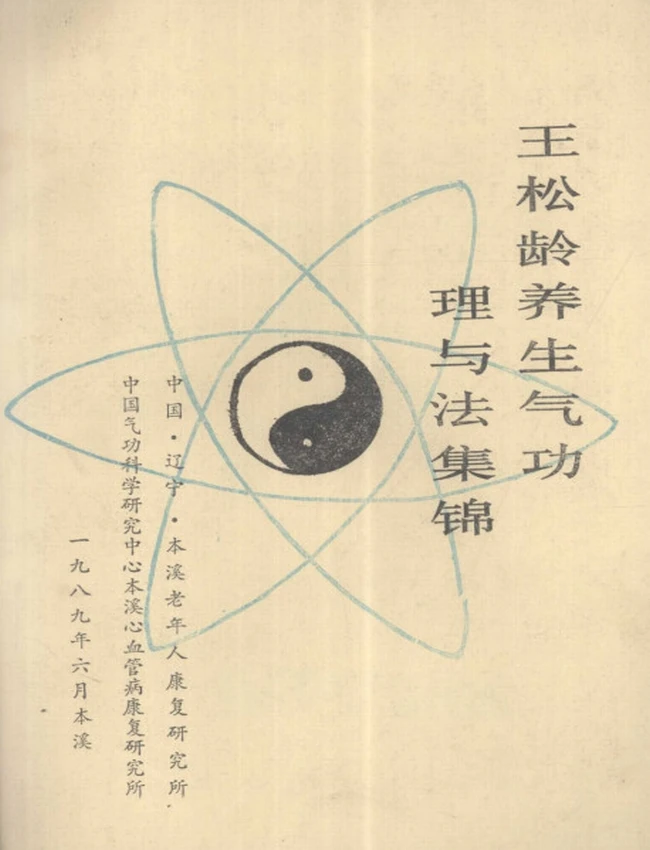 王松龄养生气功
理与法集锦
中国·辽宁·本溪老年人康复研究所
中国气功科学研究中心本溪心血管病康复研究所
一九八九年六月本溪